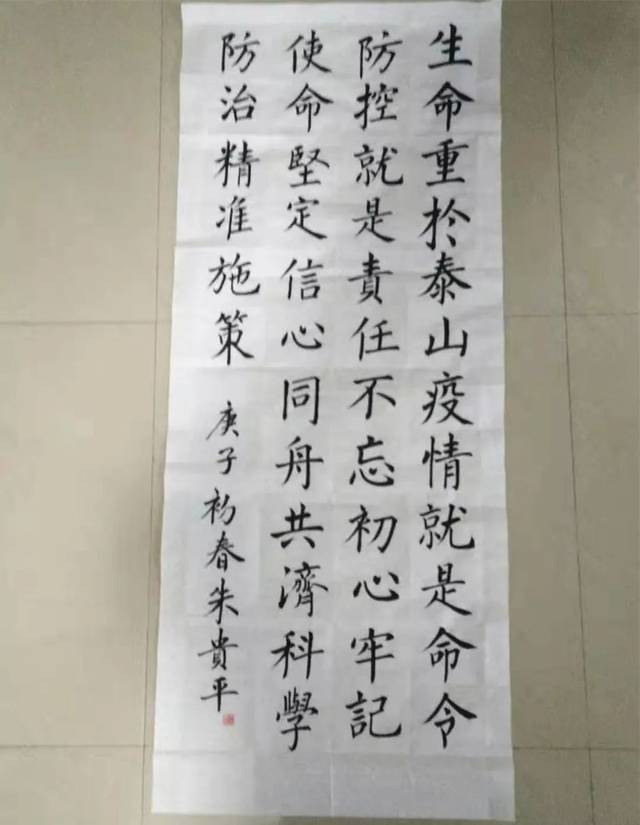 生命重於泰山疫情就是命令
防控就是責任不忘初心牢記
使命堅定信心同舟共濟科學
防治精准施策
庚子初春朱貴平